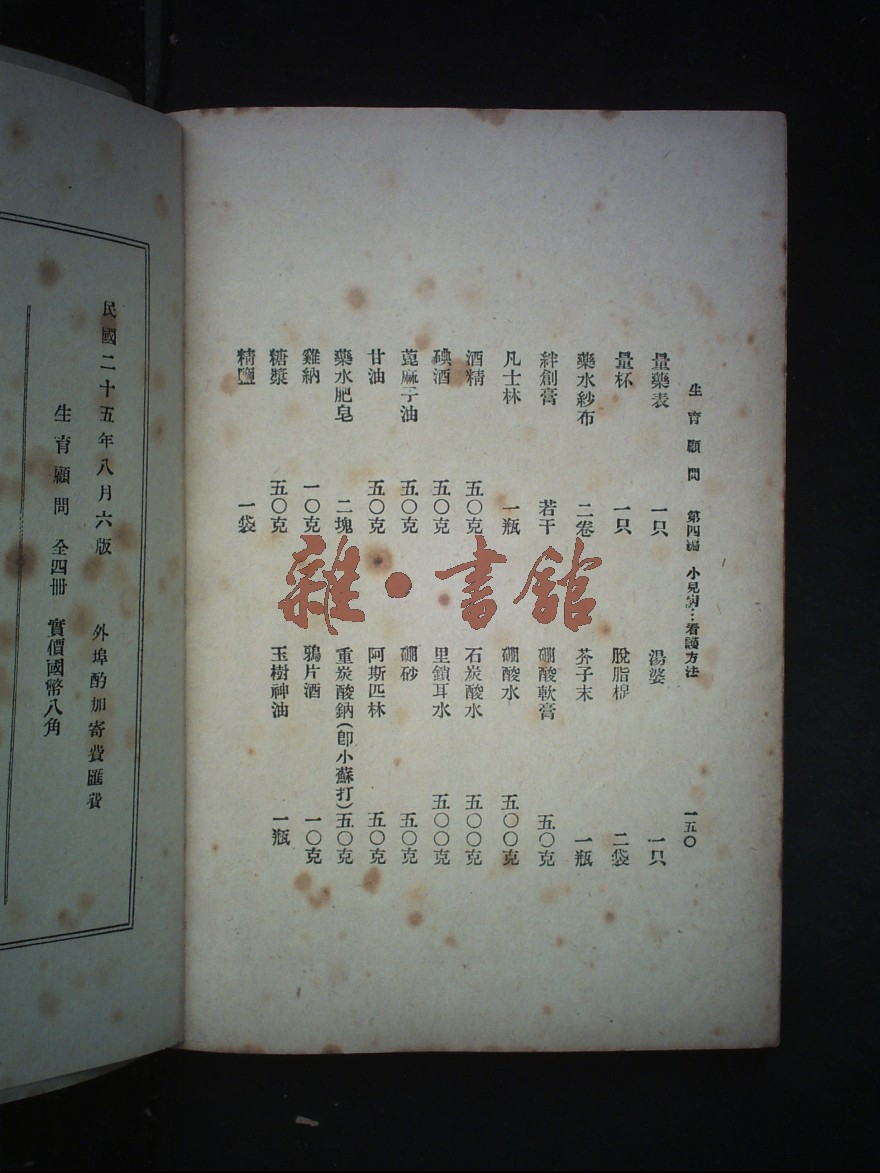 生育顧問 第四編 小兒病…看護方法 一五〇
量藥表 一只 湯婆 一只
量杯 一只 脫脂棉 二袋
藥水紗布 二卷 芥子末 一瓶
絆創膏 若干 硼酸軟膏 五〇克
凡士林 一瓶 硼酸水 五〇〇克
酒精 五〇克 石炭酸水 五〇〇克
碘酒 五〇克 里鎖耳水 五〇〇克
蓖麻子油 五〇克 硼砂 五〇克
甘油 五〇克 阿斯匹林 五〇克
藥水肥皂 二塊 重炭酸鈉(卽小蘇打)五〇克
雞納 一〇克 鴉片酒 一〇克
糖漿 五〇克 玉樹神油 一瓶
精鹽 一袋
民國二十五年八月六版 外埠酌加寄費匯費
生育顧問 全四冊 實價國幣八角
雜·書館